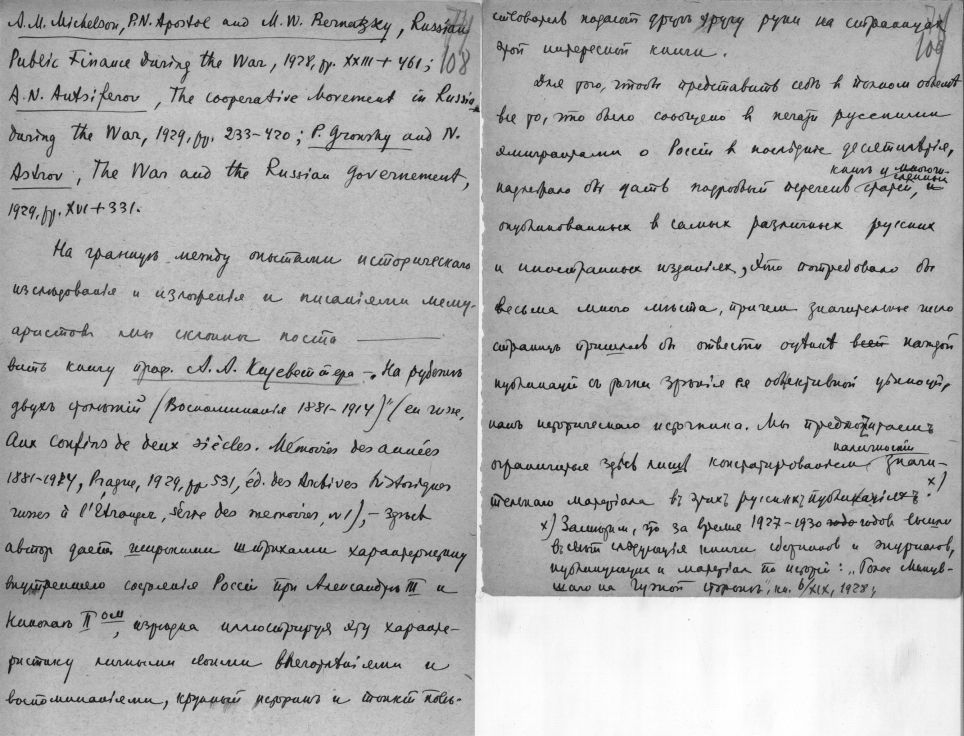 A.M. Michelson, P.N. Apostol and M.W. Bernatzky, Russian
Public Finance During the War, 1928, pp. XXIII + 461;
108
A.N. Antsiferov, The cooperative Movement in Russia
during the War, 1929, pp. 233-420; P. Gronsky and N.
Astrov, The War and the Russian Governement,
1929, pp. XVI + 331.
На границѣ между опытами историческаго
изслѣдованія и изложенія и писаніями мему-
аристовъ мы склонны поста
вить книгу проф. А.А. Кизеветтера – „На рубежѣ
двухъ столѣтій (Воспоминанія 1881-1914)" (en russe,
Aux confins de deux siècles. Mémoires des années
1881-1914, Prague, 1929, pp. 531, éd. des Archives historiques
russes à l'Etranger, série des memoires, N1), – здѣсь
авторъ даетъ широкими штрихами характеристику
внутренняго состоянія Россіи при Александрѣ III и
Николаѣ II омъ, изрѣдка иллюстрируя эту характе-
ристику личными своими впечатлѣніями и
воспоминаніями, крупный историкъ и тонкій повѣ-
109
ствователь подаютъ другъ другу руки на страницахъ
этой интересной книги.
Для того, чтобы представить себѣ въ полномъ объемѣ
все то, что было сообщено въ печати русскими
эмигрантами о Россіи въ послѣднее десятилѣтіе,
надлежало бы дать подробный перечень книгъ и многочи-
сленныхъ статей, и
опубликованныхъ въ самыхъ различныхъ русскихъ
и иностранныхъ изданіяхъ, Это потребовало бы
весьма много мѣста, причемъ значительное число
страницъ пришлось бы отвести оцѣнкѣ всей каждой
публикаціи съ точки зрѣнія ея объективной цѣнности,
какъ историческаго источника. Мы предпочитаемъ
ограничиться здѣсь лишь констатированіемъ наличности значи-
тельнаго матеріала въ этихъ русскихъ публикаціяхъ. x)
x) Замѣтимъ, что за время 1927-1930 годовъ вышли
въ свѣтъ слѣдующія книги сборниковъ и журналовъ,
публикующіе и матеріалъ по исторіи: „Голос Минув-
шаго на Чужой сторонѣ", кн. 6/XIX, 1928;